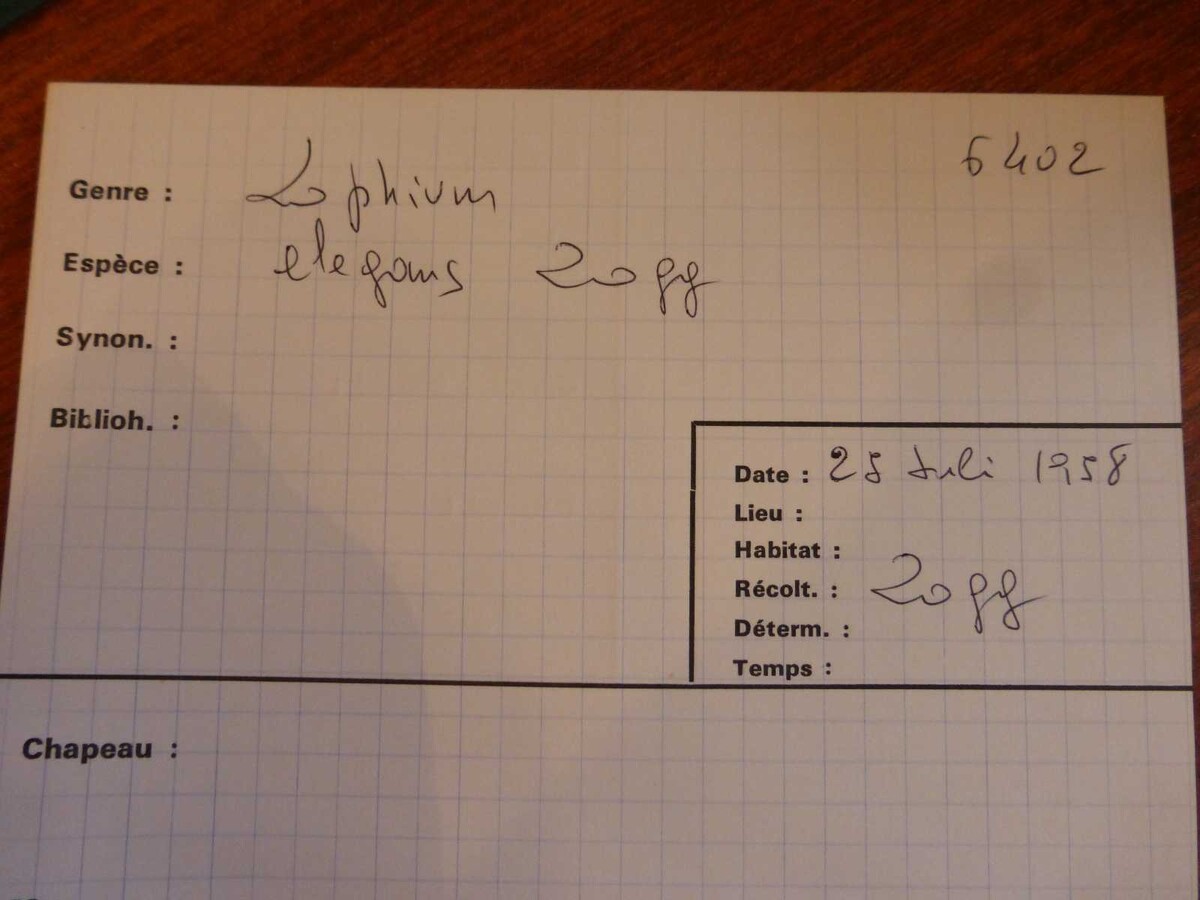 6402
Genre : Lophium
Espèce : elegans Zogg
Synon. :
Biblioh. :
Date : 25 Juli 1958
Lieu :
Habitat :
Récolt. : Zogg
Déterm. :
Temps :
Chapeau :